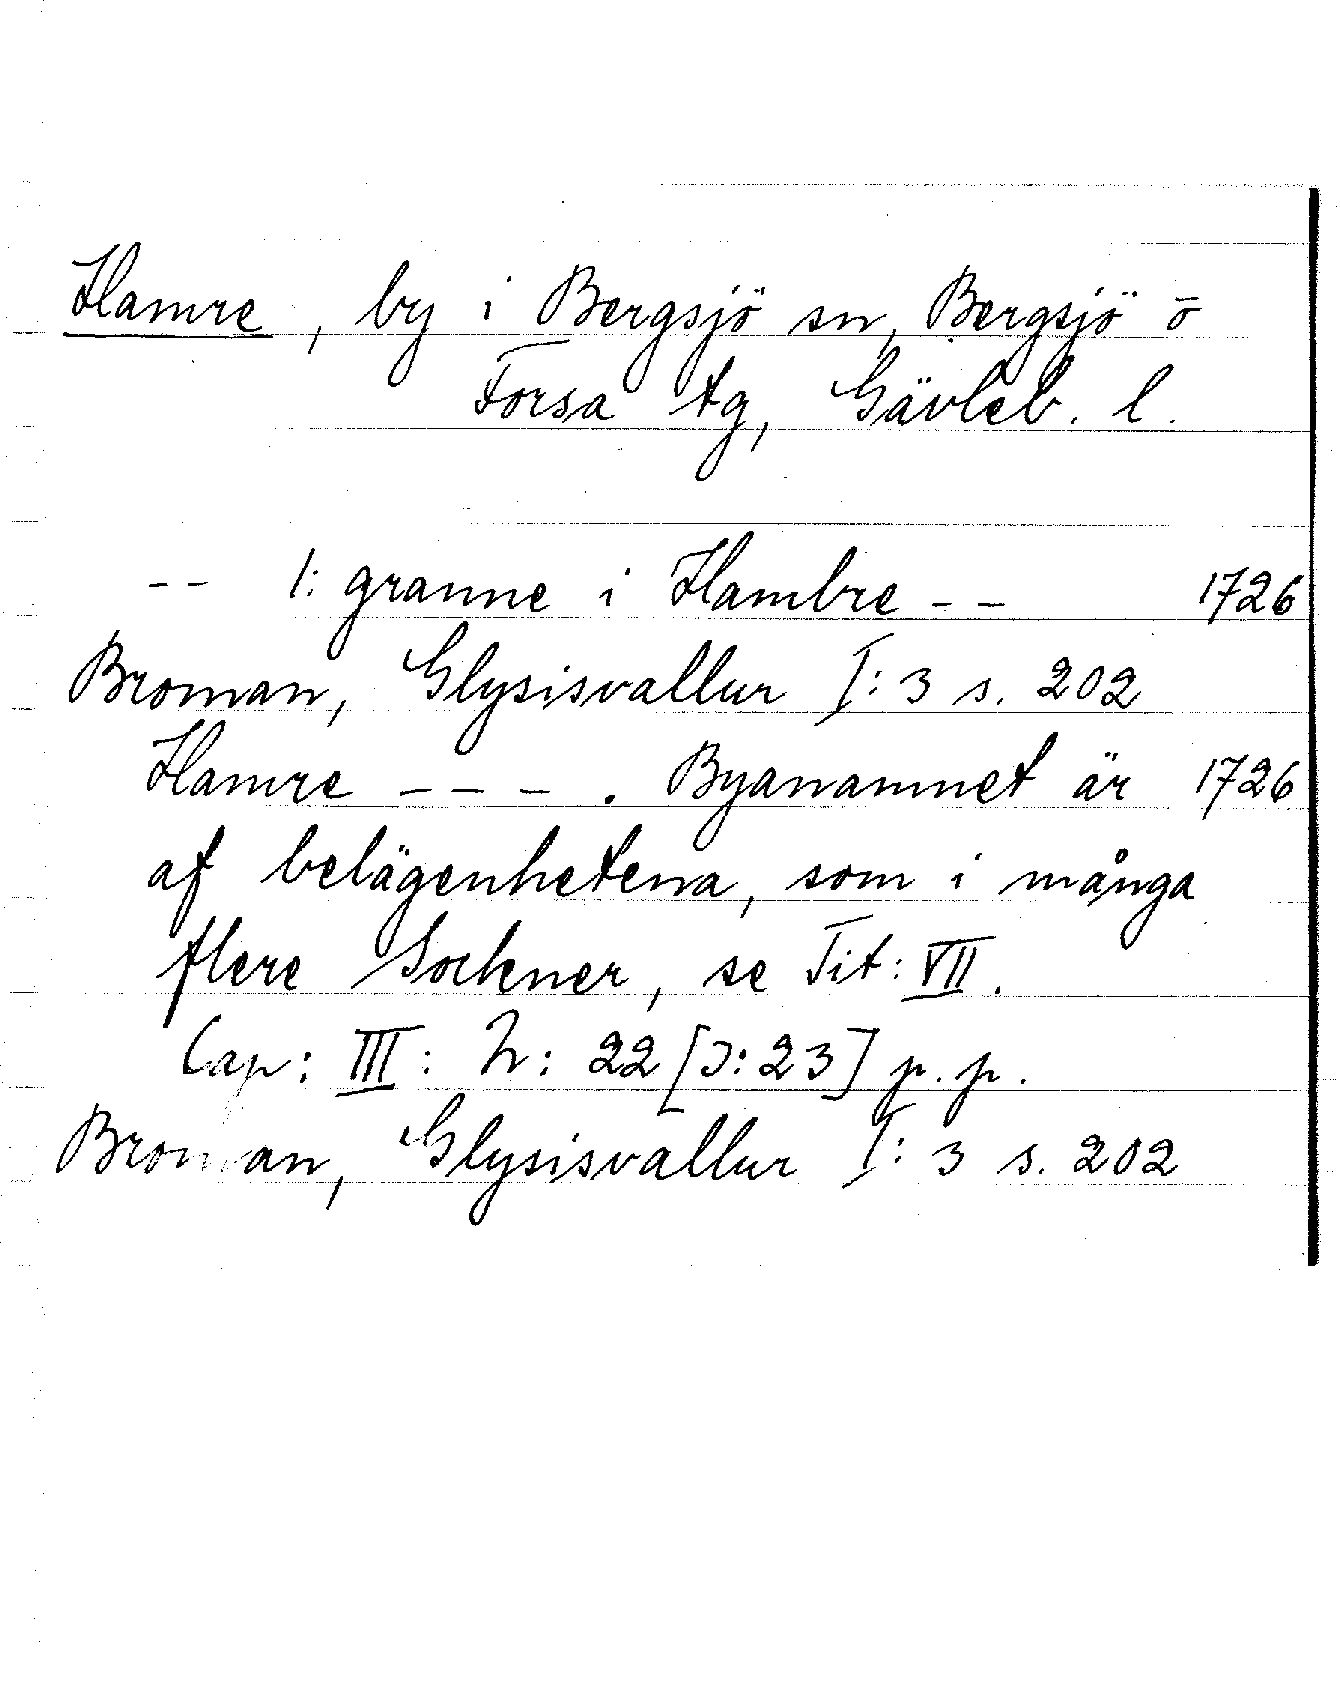 Hamre, by i Bergsjö sn, Bergsjö o
Forsa tg, Gävleb. l.
-- 1: granne i Hambre -- 1726
Broman, Glysisvallur I: 3 s. 202
Hamre --- . Byanamnet är 1726
af belägenhetena, som i många
flere Sockner, se Tit: VII.
Cap: III: N: 22 [J: 23] p. p.
Broman, Glysisvallur I: 3 s. 202